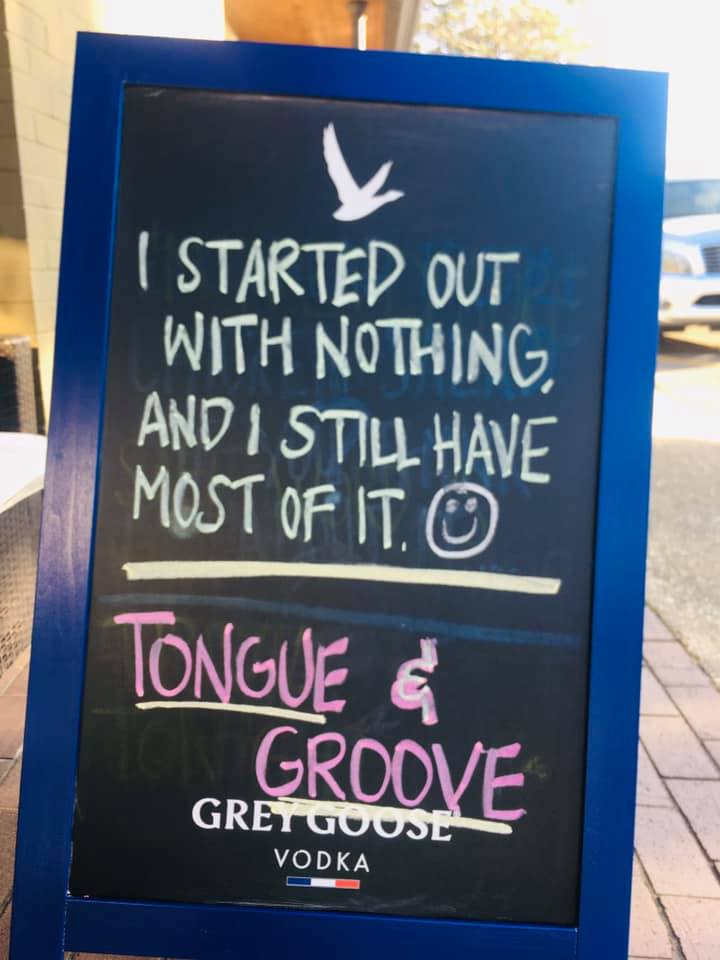 I STARTED OUT
WITH NOTHING,
AND I STILL HAVE
MOST OF IT.
TONGUE &
GROOVE
GREY GOOSE
VODKA